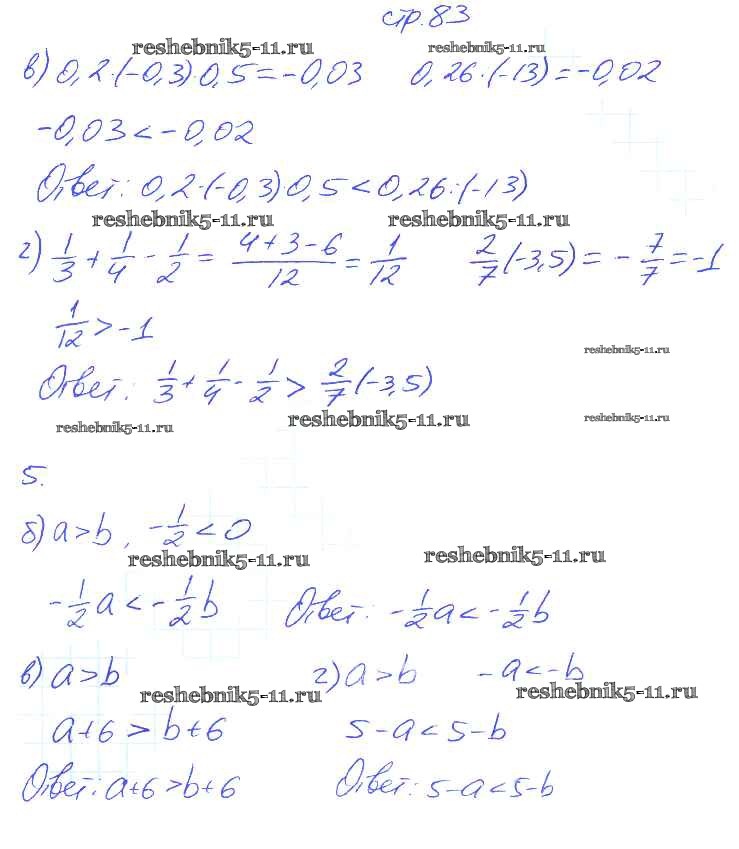 стр. 83
reshebnik5-11.ru reshebnik5-11.ru
в) 0,2·(-0,3)·0,5=-0,03 0,26·(-13)=-0,02
-0,03<-0,02
Ответ: 0,2·(-0,3)0,5<0,26:(-13)
reshebnik5-11.ru reshebnik5-11.ru
г) 1/3 + 1/4 - 1/2 = (4+3-6)/12 = 1/12 2/7(-3,5) = -7/7 = -1
1/12 > -1
reshebnik5-11.ru
Ответ: 1/3 + 1/4 - 1/2 > 2/7(-3,5)
reshebnik5-11.ru reshebnik5-11.ru reshebnik5-11.ru
5.
б) a>b, -1/2<0
reshebnik5-11.ru reshebnik5-11.ru
-1/2a<-1/2b Ответ: -1/2a<-1/2b
в) a>b г) a>b -a<-b
reshebnik5-11.ru reshebnik5-11.ru
a+6>b+6 5-a<5-b
Ответ: a+6>b+6 Ответ: 5-a<5-b